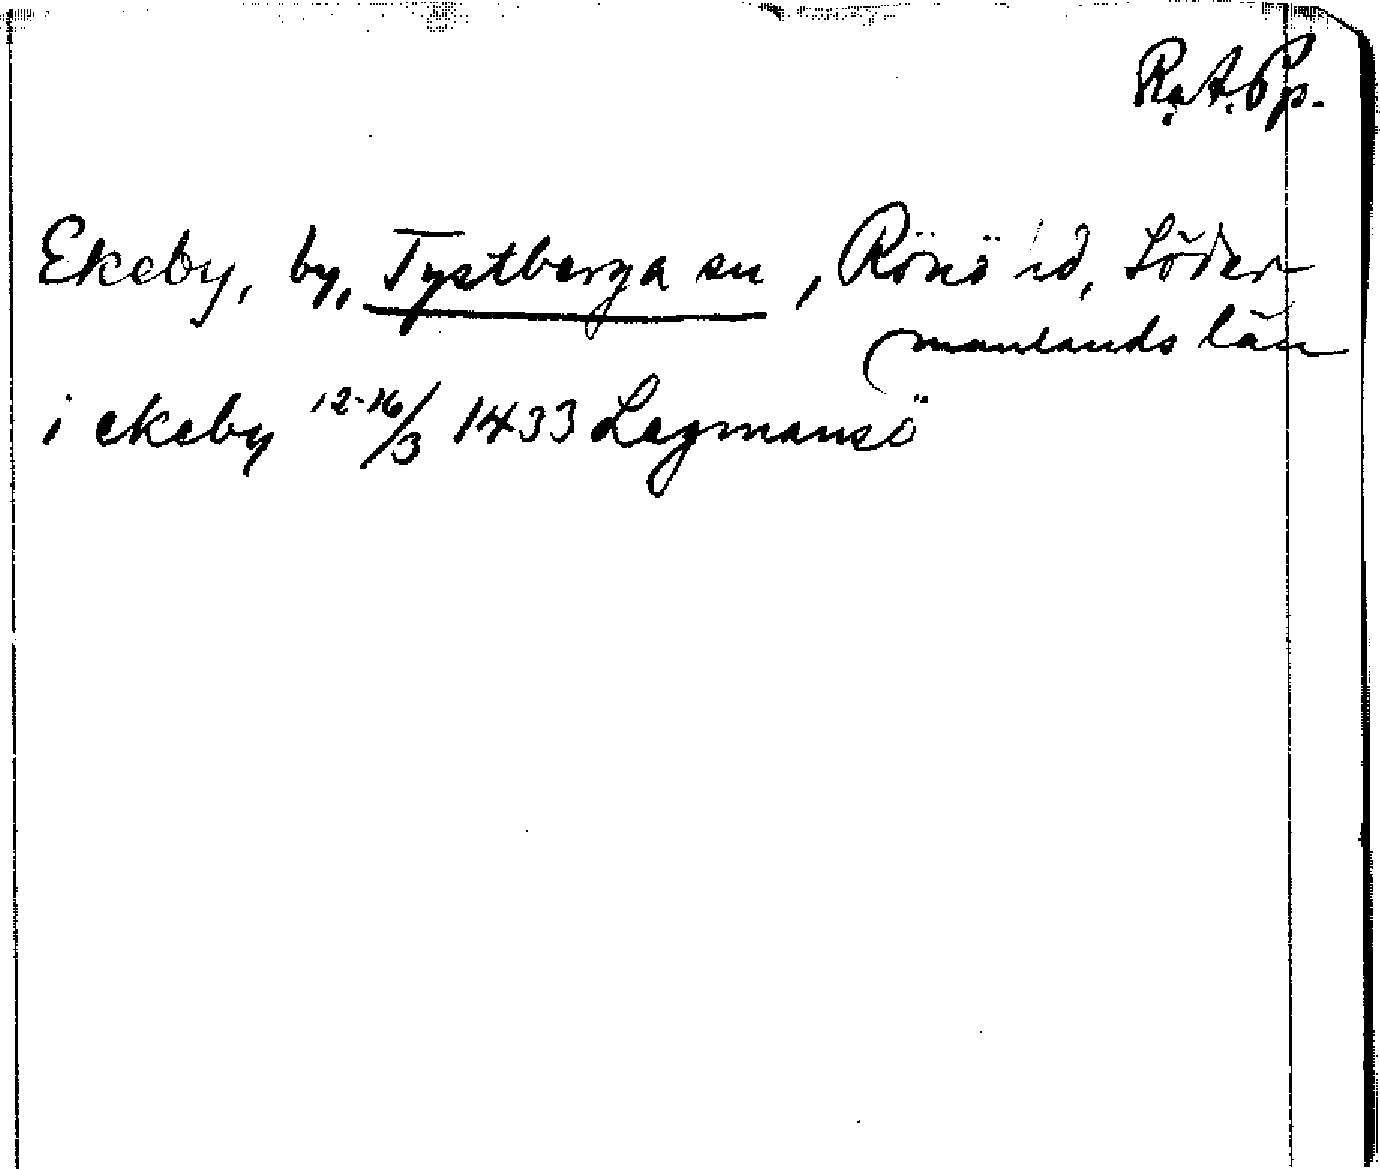 R.A. Pp.
Ekeby, by, Tystberga sn, Rönö hd, Söder-
manlands län
i ekeby 12-16/3 1433 Lagmansö